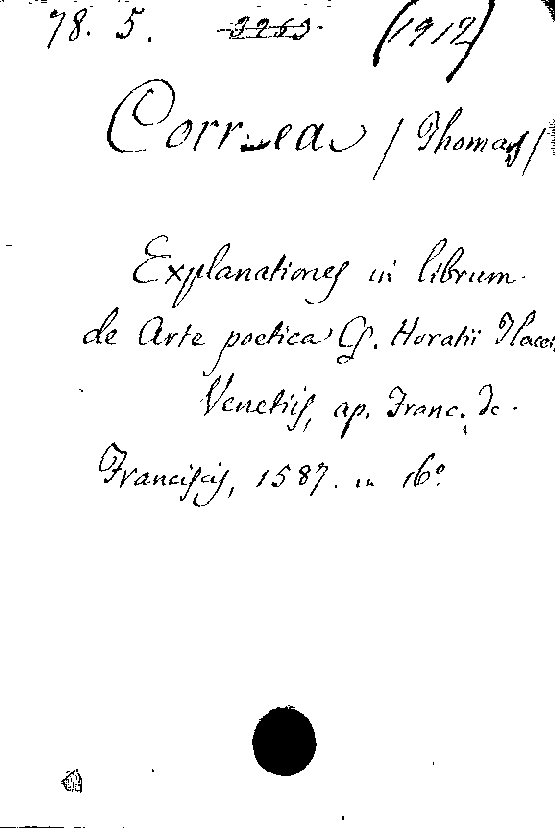 78. 5. 3263 (1912)
Correa / Thomas /
Explanationes in librum
de Arte poetica Q. Horatii Flacci
Venetiis, ap. Franc. de
Franciscis, 1587. in 16º